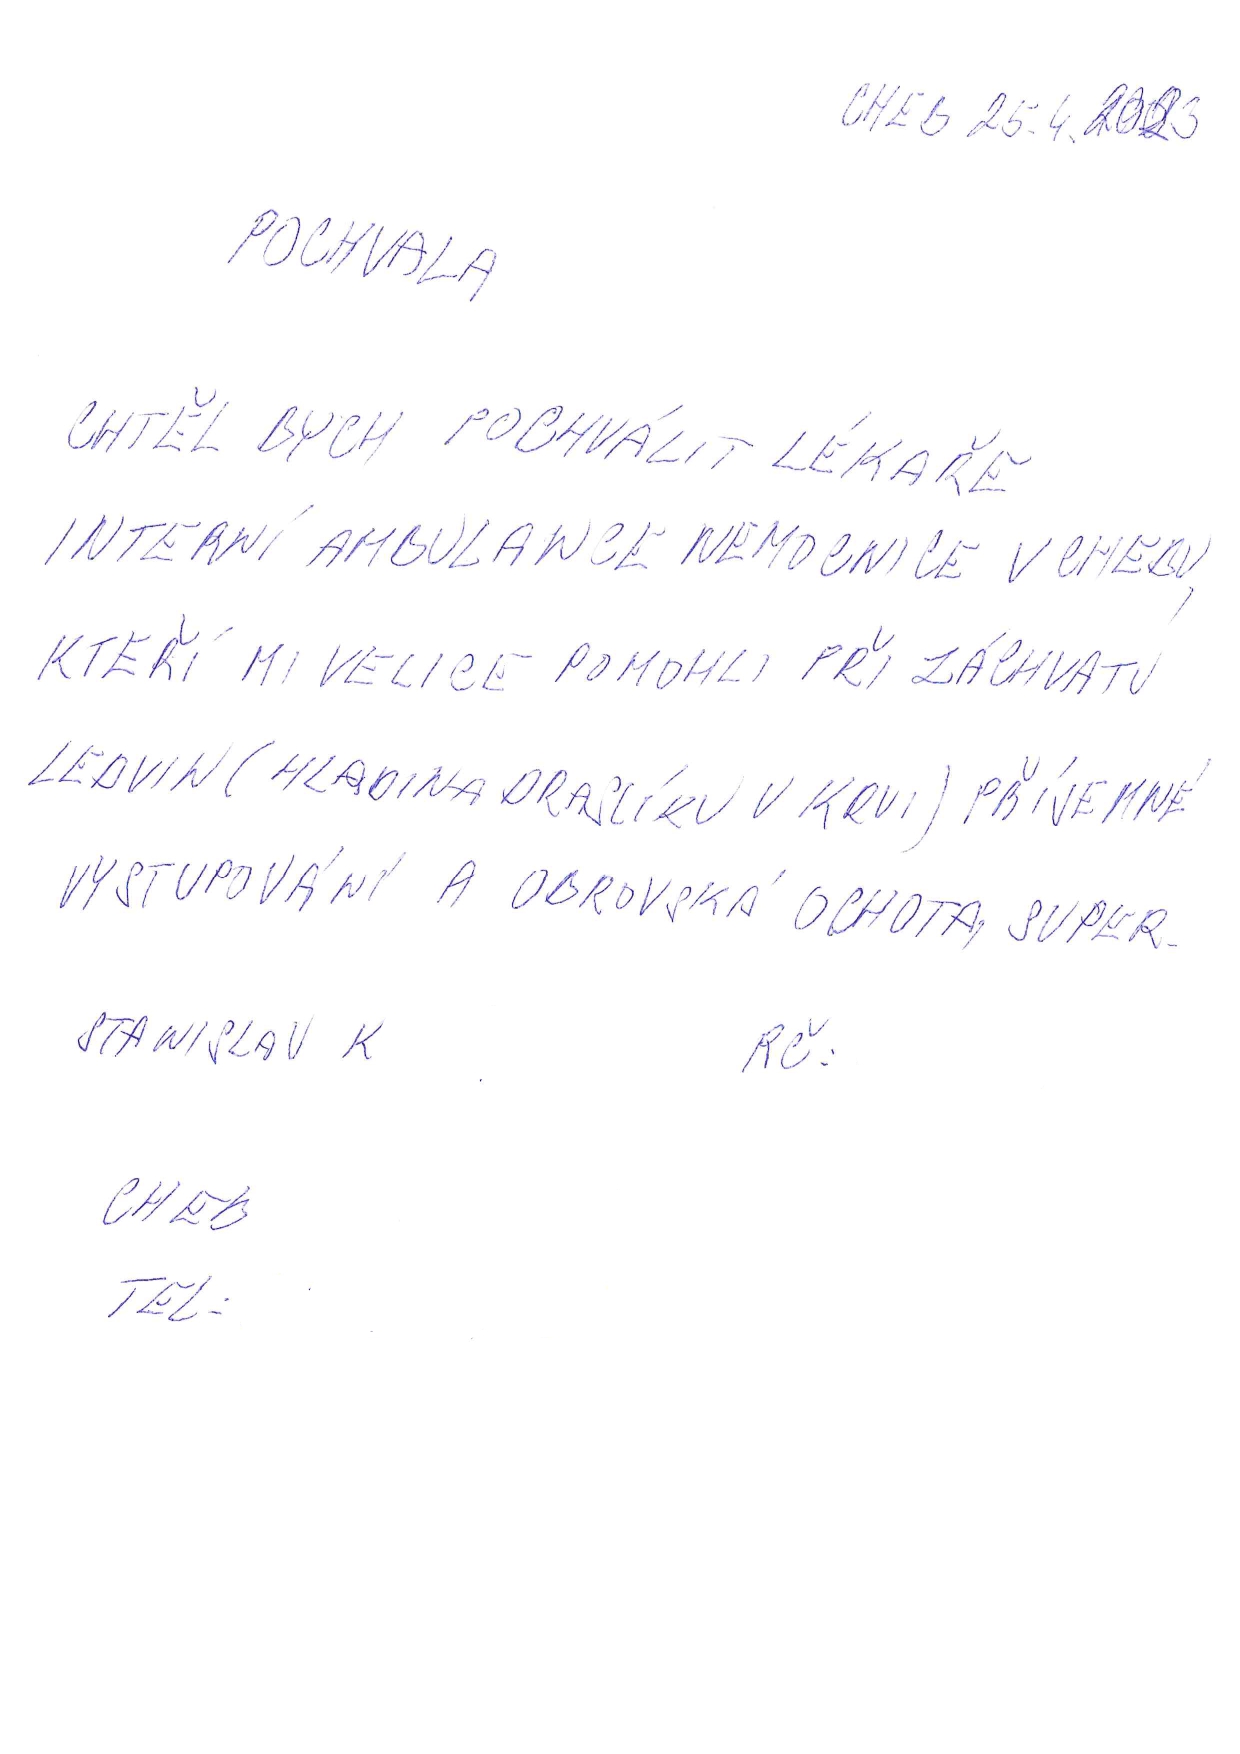 CHEB 25.4.2023
POCHVALA
CHTĚL BYCH POCHVÁLIT LÉKAŘE
INTERNÍ AMBULANCE NEMOCNICE V CHEBU,
KTEŘÍ MI VELICE POMOHLI PŘI ZÁCHVATU
LEDVIN (HLADINA DRASLÍKU V KRVI) PŘÍJEMNÉ
VYSTUPOVÁNÍ A OBROVSKÁ OCHOTA, SUPER.
STANISLAV K RČ:
CHEB
TEL: